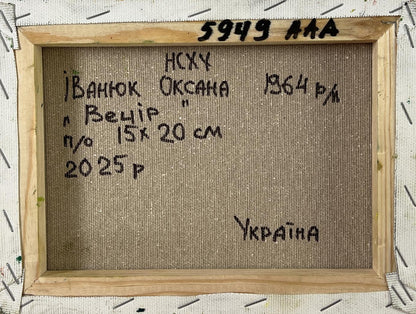 5949 ААА
НСХУ
ІВАНЮК ОКСАНА 1964 р/н
„Вечір"
п/о 15х20 см
2025р
УКРАЇНА